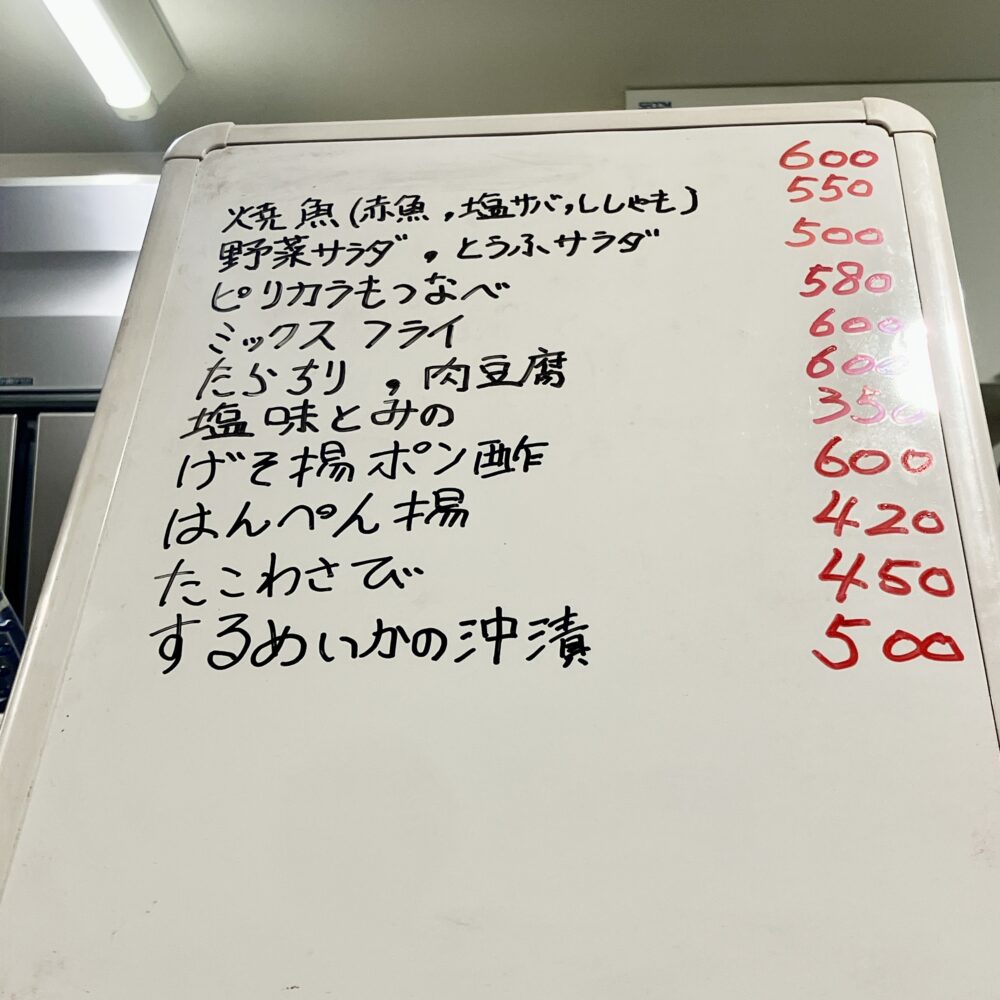 600
焼魚(赤魚,塩サバ,ししゃも) 550
野菜サラダ,とうふサラダ 500
ピリカラもつなべ 580
ミックスフライ 600
たらちり,肉豆腐 600
塩味とみの 350
げそ揚ポン酢 600
はんぺん揚 420
たこわさび 450
するめいかの沖漬 500